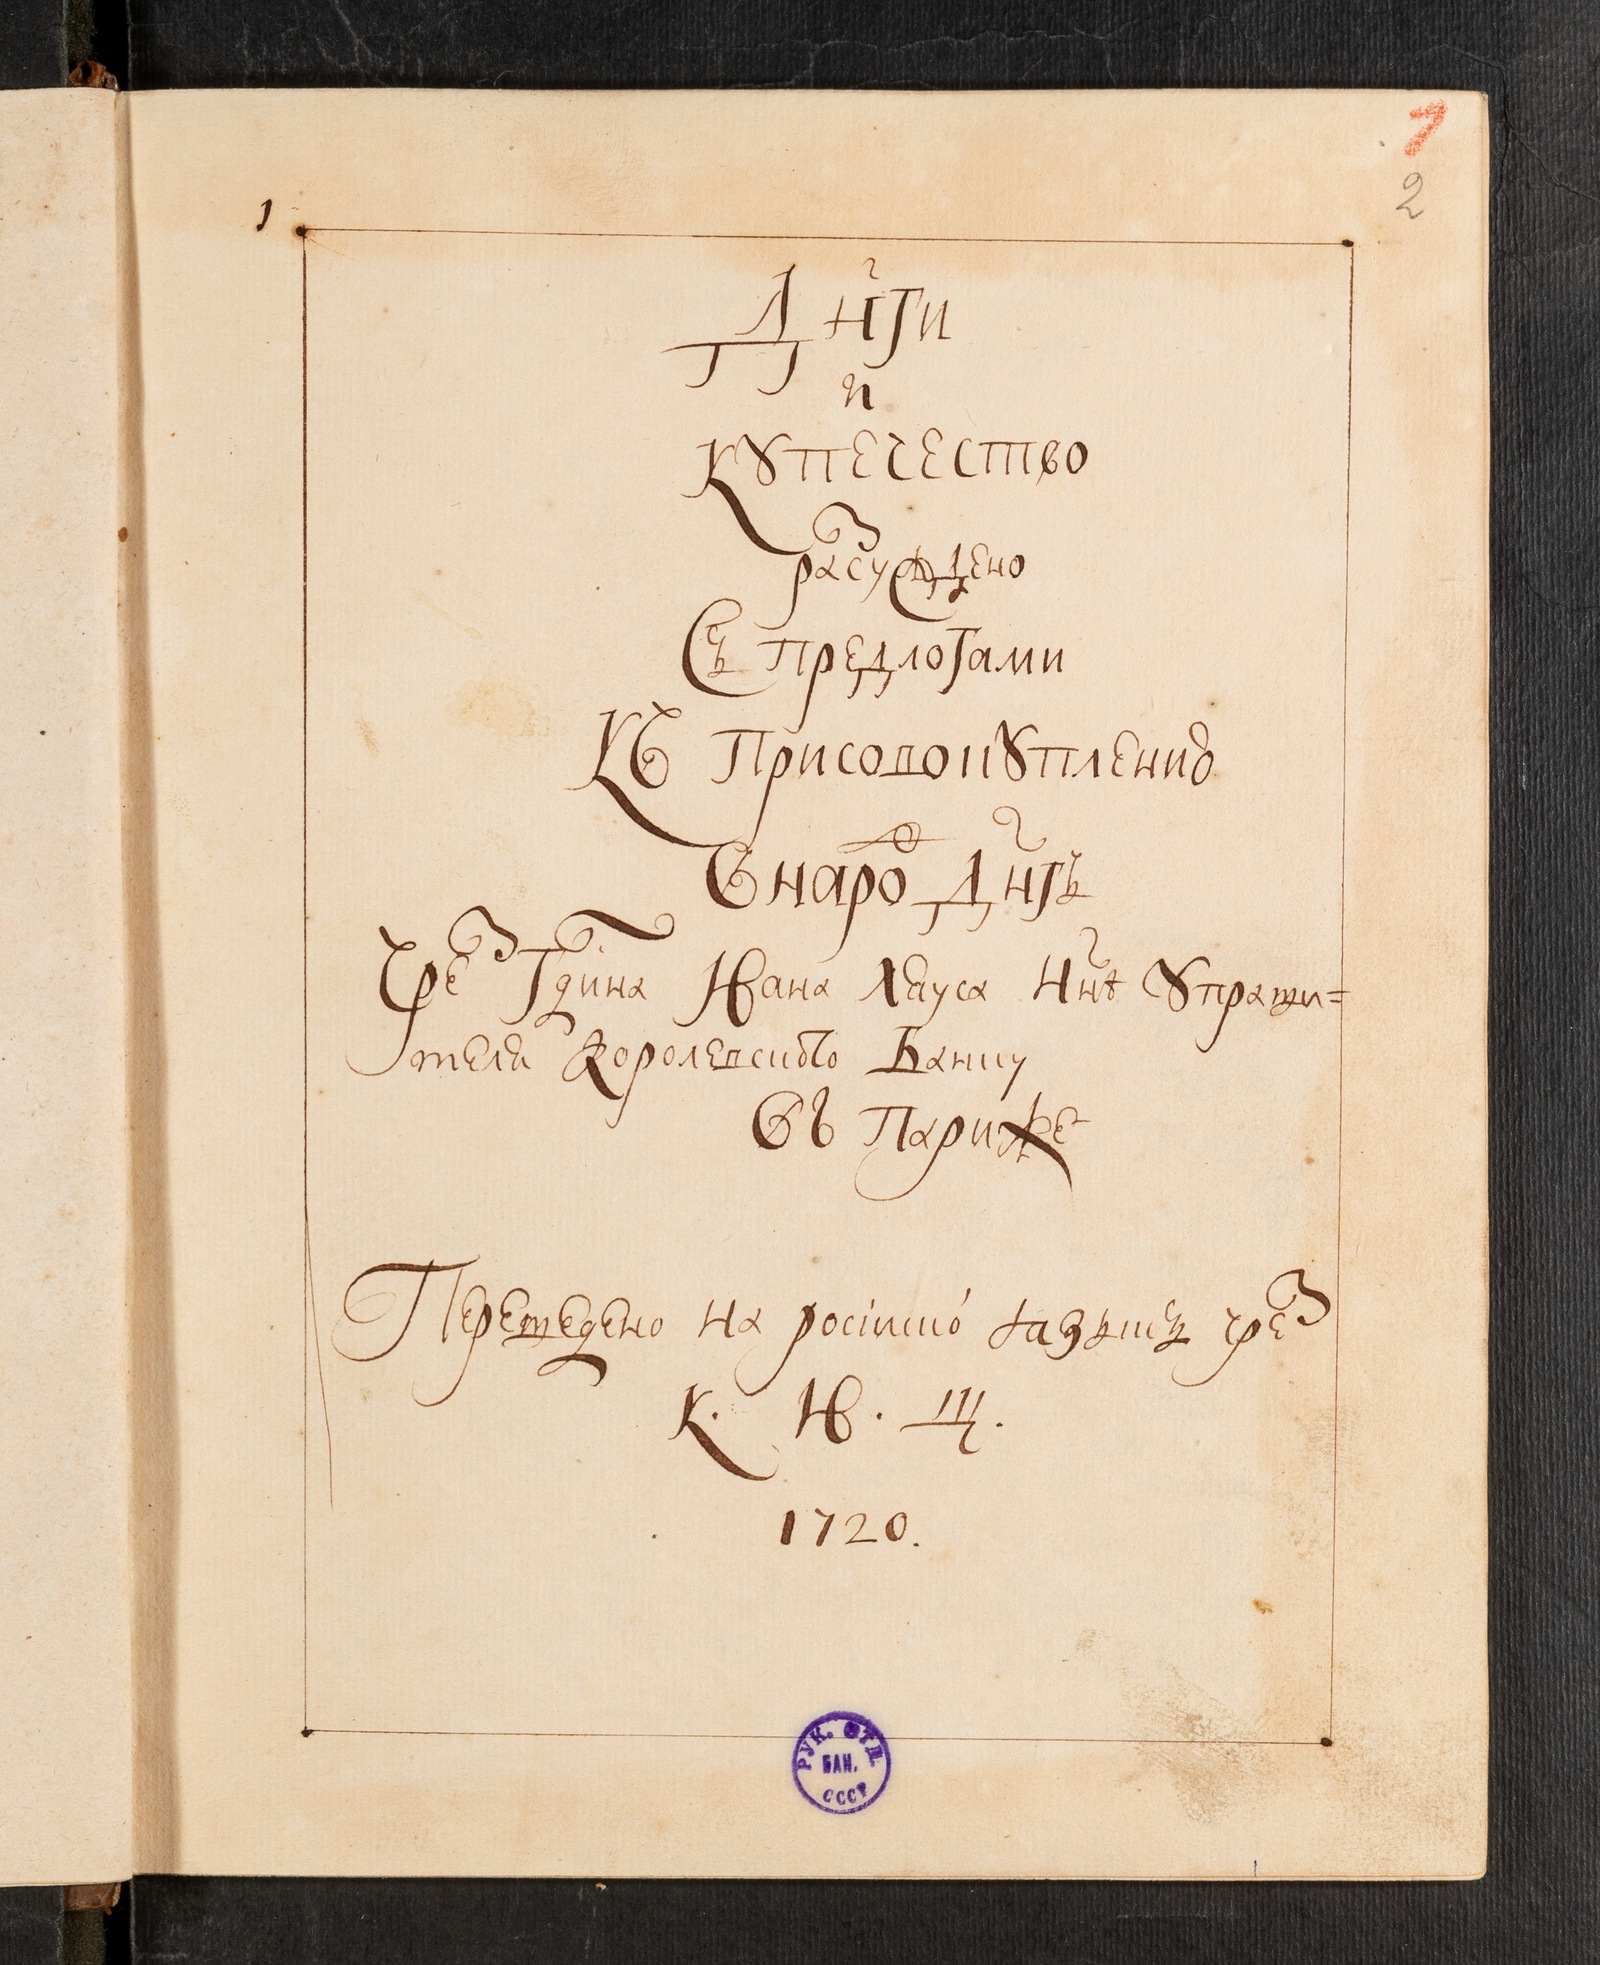 1
2
1
Днги
и
купечество
разсуждено
Съ предлогами
Къ присовокуплению
Въ народ днгъ
Чрез Гдина Ивана Лауса ннѣ управи=
теля Королевского Банку
Въ Париже
Переведено на росиіско языкъ чрез
К. И. Щ.
1720.
РУК. ОТД.
БАН.
СССР